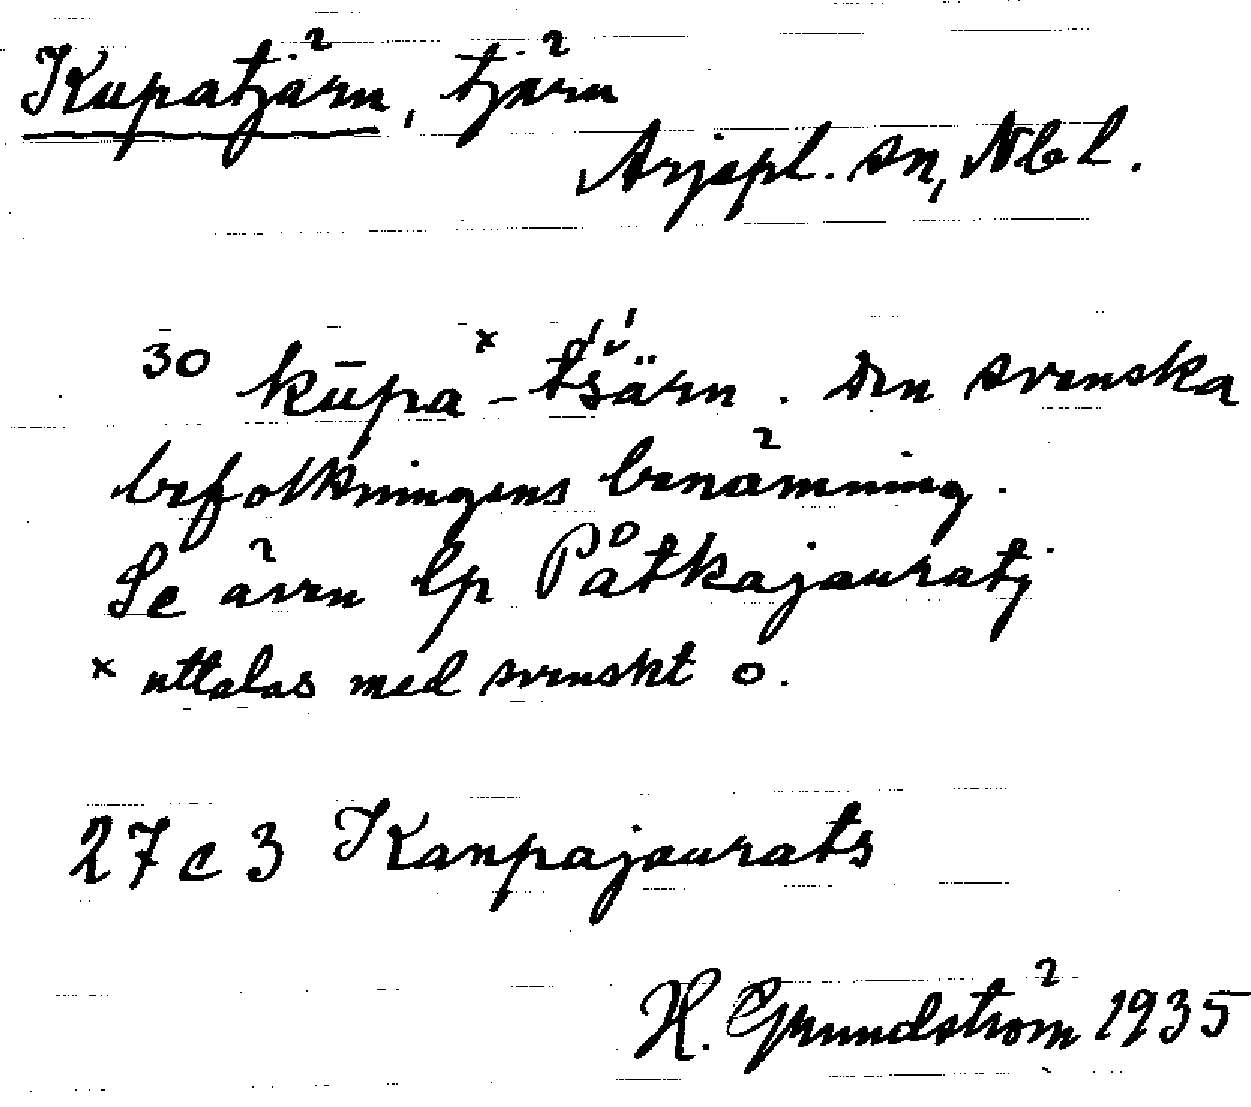 Kupatjärn, tjärn
Arjepl. sn, Nbl.
30 kūpaˣ-tšärn. Den svenska
befolkningens benämning.
Se även lp Påtkajauratj
x uttalas med svenskt o.
27 c 3 Kanpajaurats
H. Grundström 1935